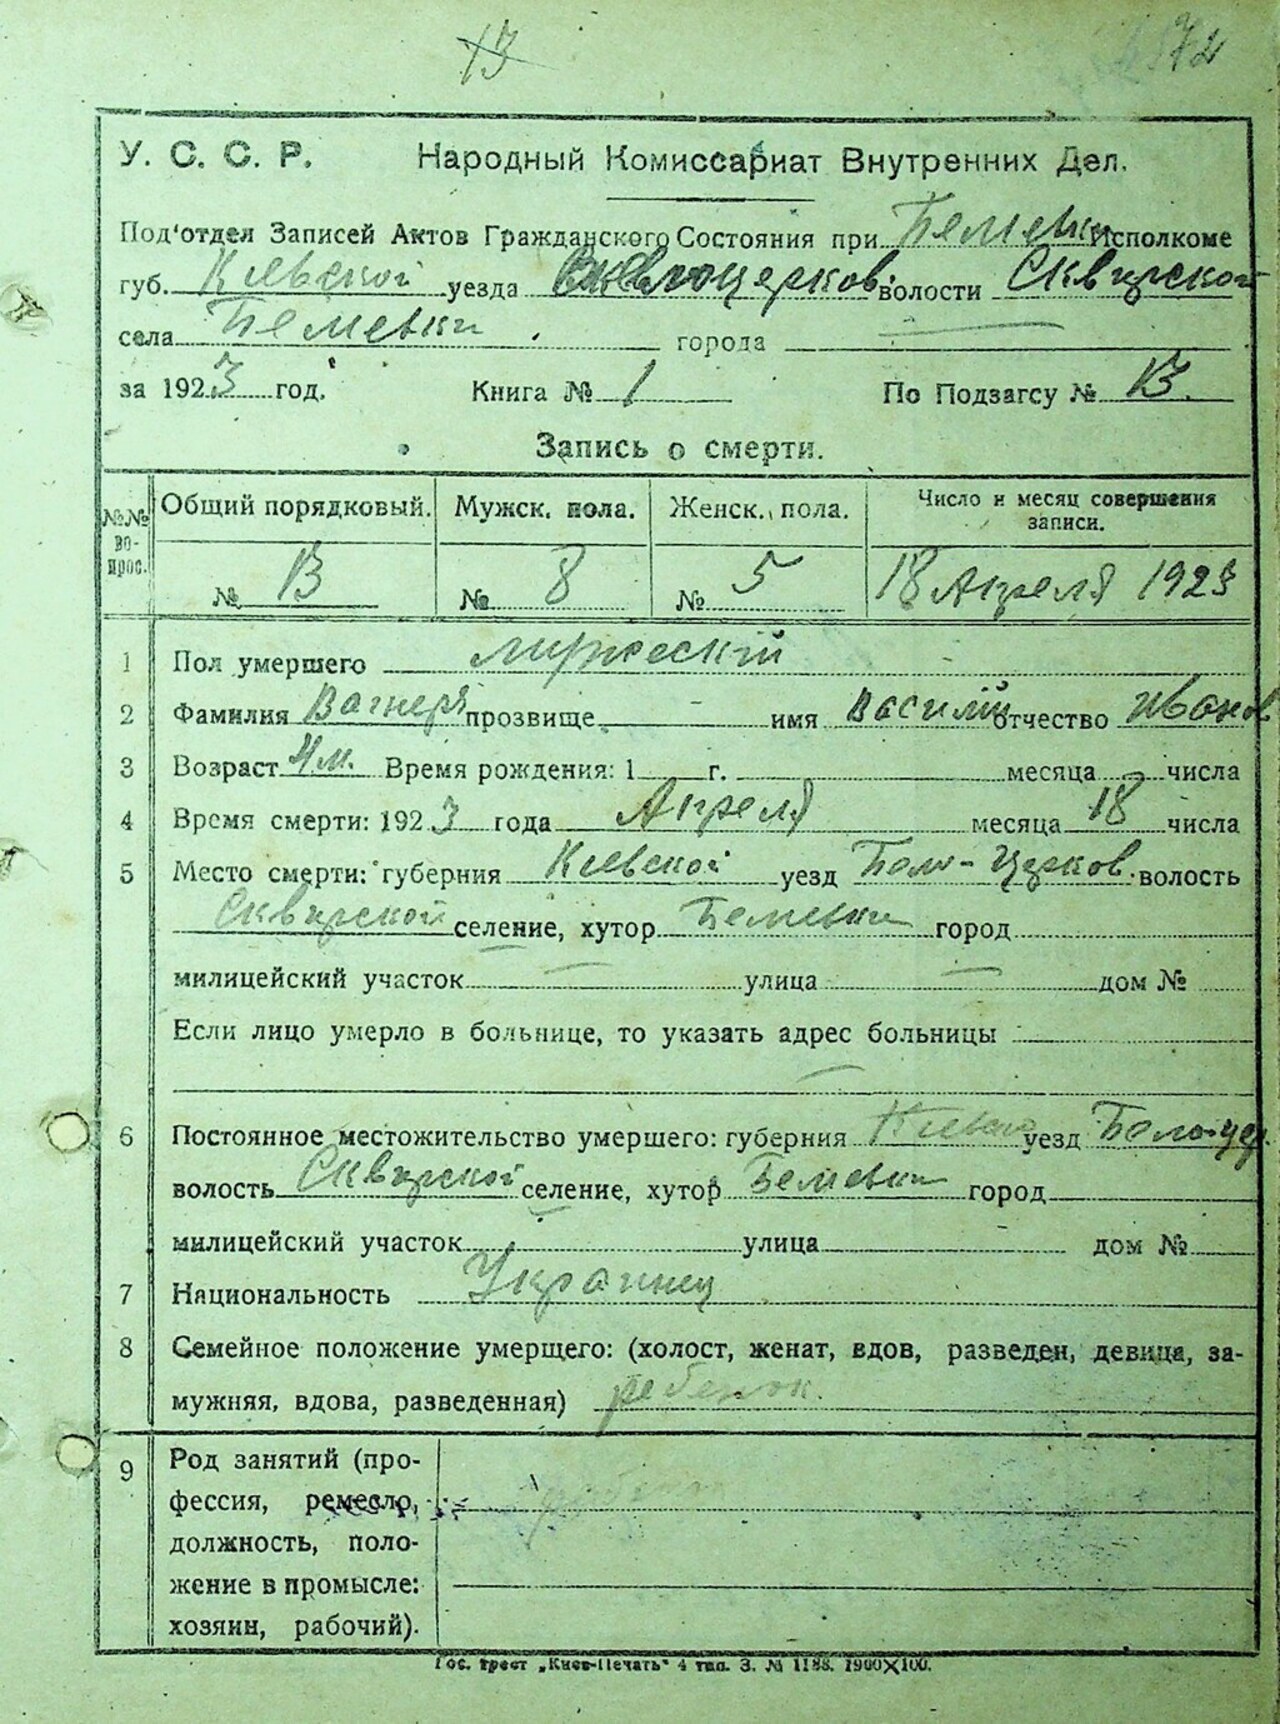 13
У. С. С. Р. Народный Комиссариат Внутренних Дел.
Под'отдел Записей Актов Гражданского Состояния при Пемевки Исполкоме
губ. Киевской уезда Белоцерков. волости Сквирской
села Пемевки города
за 1923 год. Книга № 1 По Подзагсу № 13.
Запись о смерти.
№№ вопрос. Общий порядковый. Мужск. пола. Женск. пола. Число и месяц совершения записи.
№ 13 № 8 № 5 18 Апреля 1923
1 Пол умершего мужеский
2 Фамилия Вагнеря прозвище - имя Василий отчество Иванов
3 Возраст 4 м. Время рождения: 1 г. месяца числа
4 Время смерти: 1923 года Апреля месяца 18 числа
5 Место смерти: губерния Киевской уезд Бело-Церков. волость
Сквирской селение, хутор Пемевки город
милицейский участок — улица — дом №
Если лицо умерло в больнице, то указать адрес больницы
—
6 Постоянное местожительство умершего: губерния Киевско уезд Бело-цер.
волость Сквирской селение, хутор Пемевки город
милицейский участок улица дом №
7 Национальность Украинец
8 Семейное положение умерщего: (холост, женат, вдов, разведен, девица, за-
мужняя, вдова, разведенная) ребенок.
9 Род занятий (про-
фессия, ремесло,
должность, поло-
жение в промысле:
хозяин, рабочий).
Гос. трест „Киев-Печать“ 4 тип. З. № 1188. 1900×100.